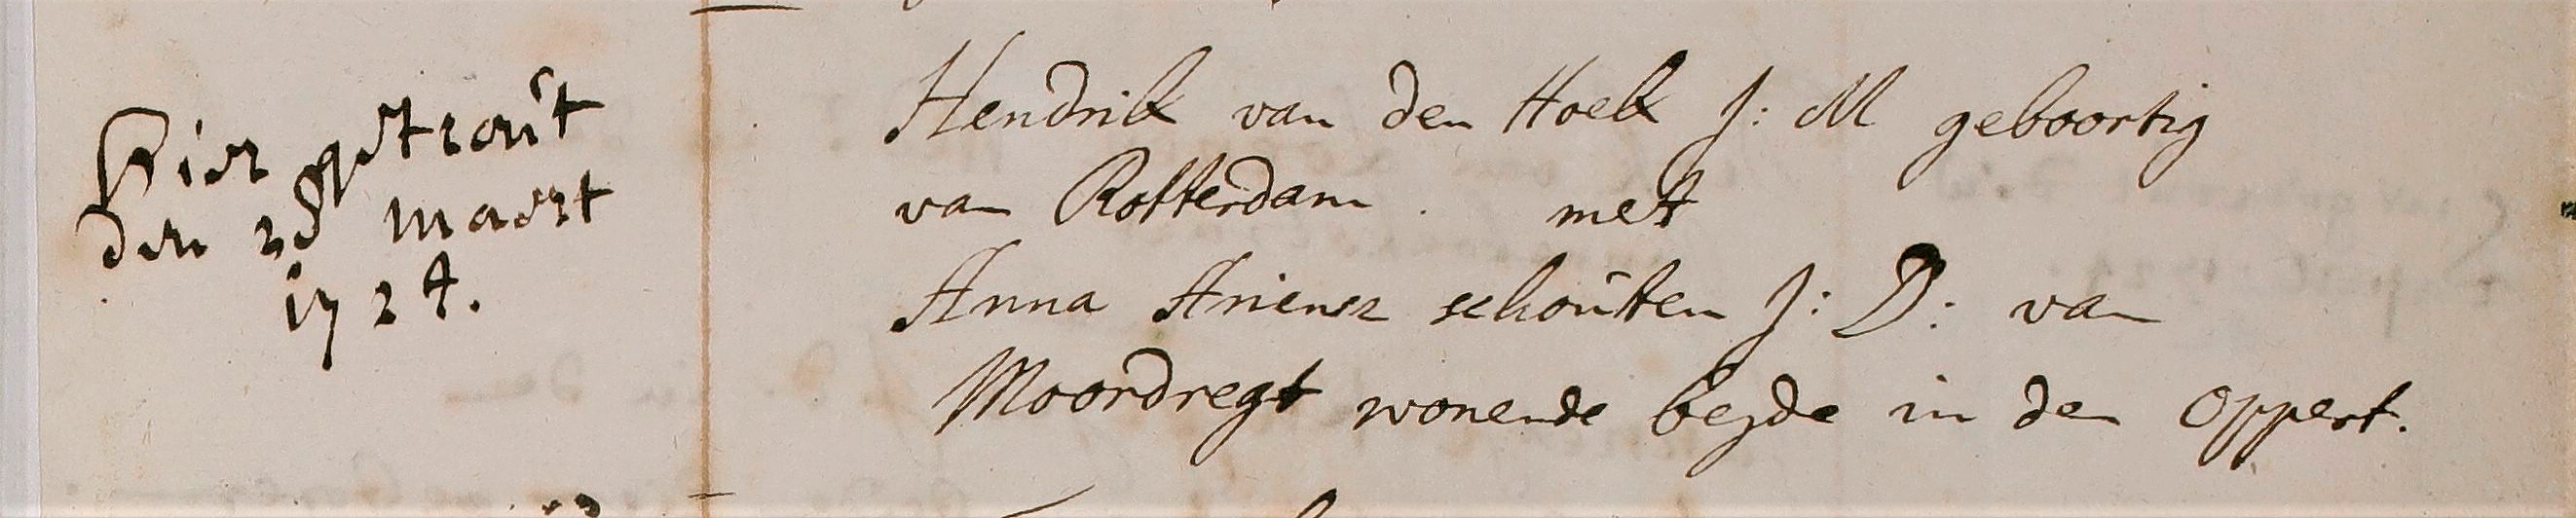 Hier getrout
den 28 maert
1724.
Hendrik van den Hoek J: M geboortig
van Rotterdam. met
Anna Ariensz schoúten J: D: van
Moordregt wonende beyde in den Oppert.